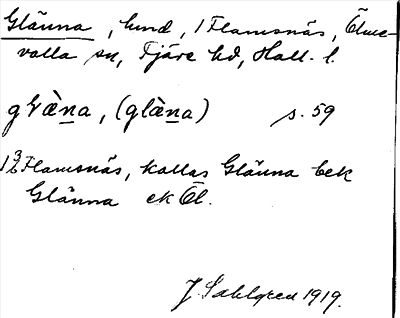 Glänna, hmd, 1 Flamsnäs, Ölme-
valla sn, Fjäre hd, Hall. l.
gɫæ̀na, (glæ̀na) s. 59
1 3/16 Flamsnäs, kallas Glänna bek
Glänna ek Öl.
J. Sahlgren 1919.